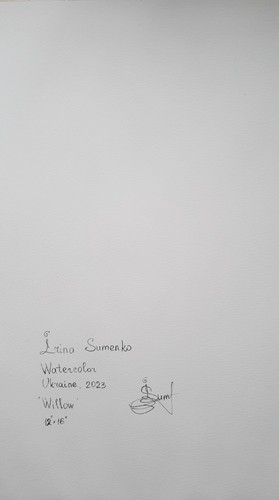 Irina Sumenko
Watercolor
Ukraine, 2023
"Willow"
12"×16"
Sum